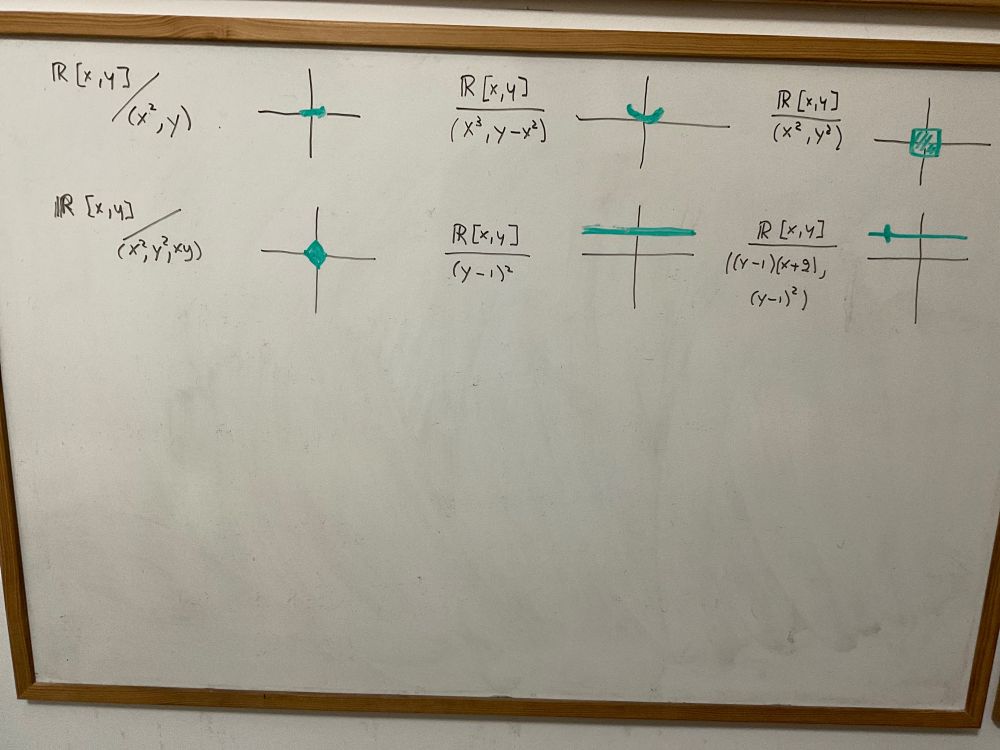 ℝ[x,y]/(x²,y)
ℝ[x,y]
(x³, y-x²)
ℝ[x,y]
(x², y²)
ℝ[x,y]/(x²,y²,xy)
ℝ[x,y]
(y-1)²
ℝ[x,y]
((y-1)(x+2),
(y-1)²)